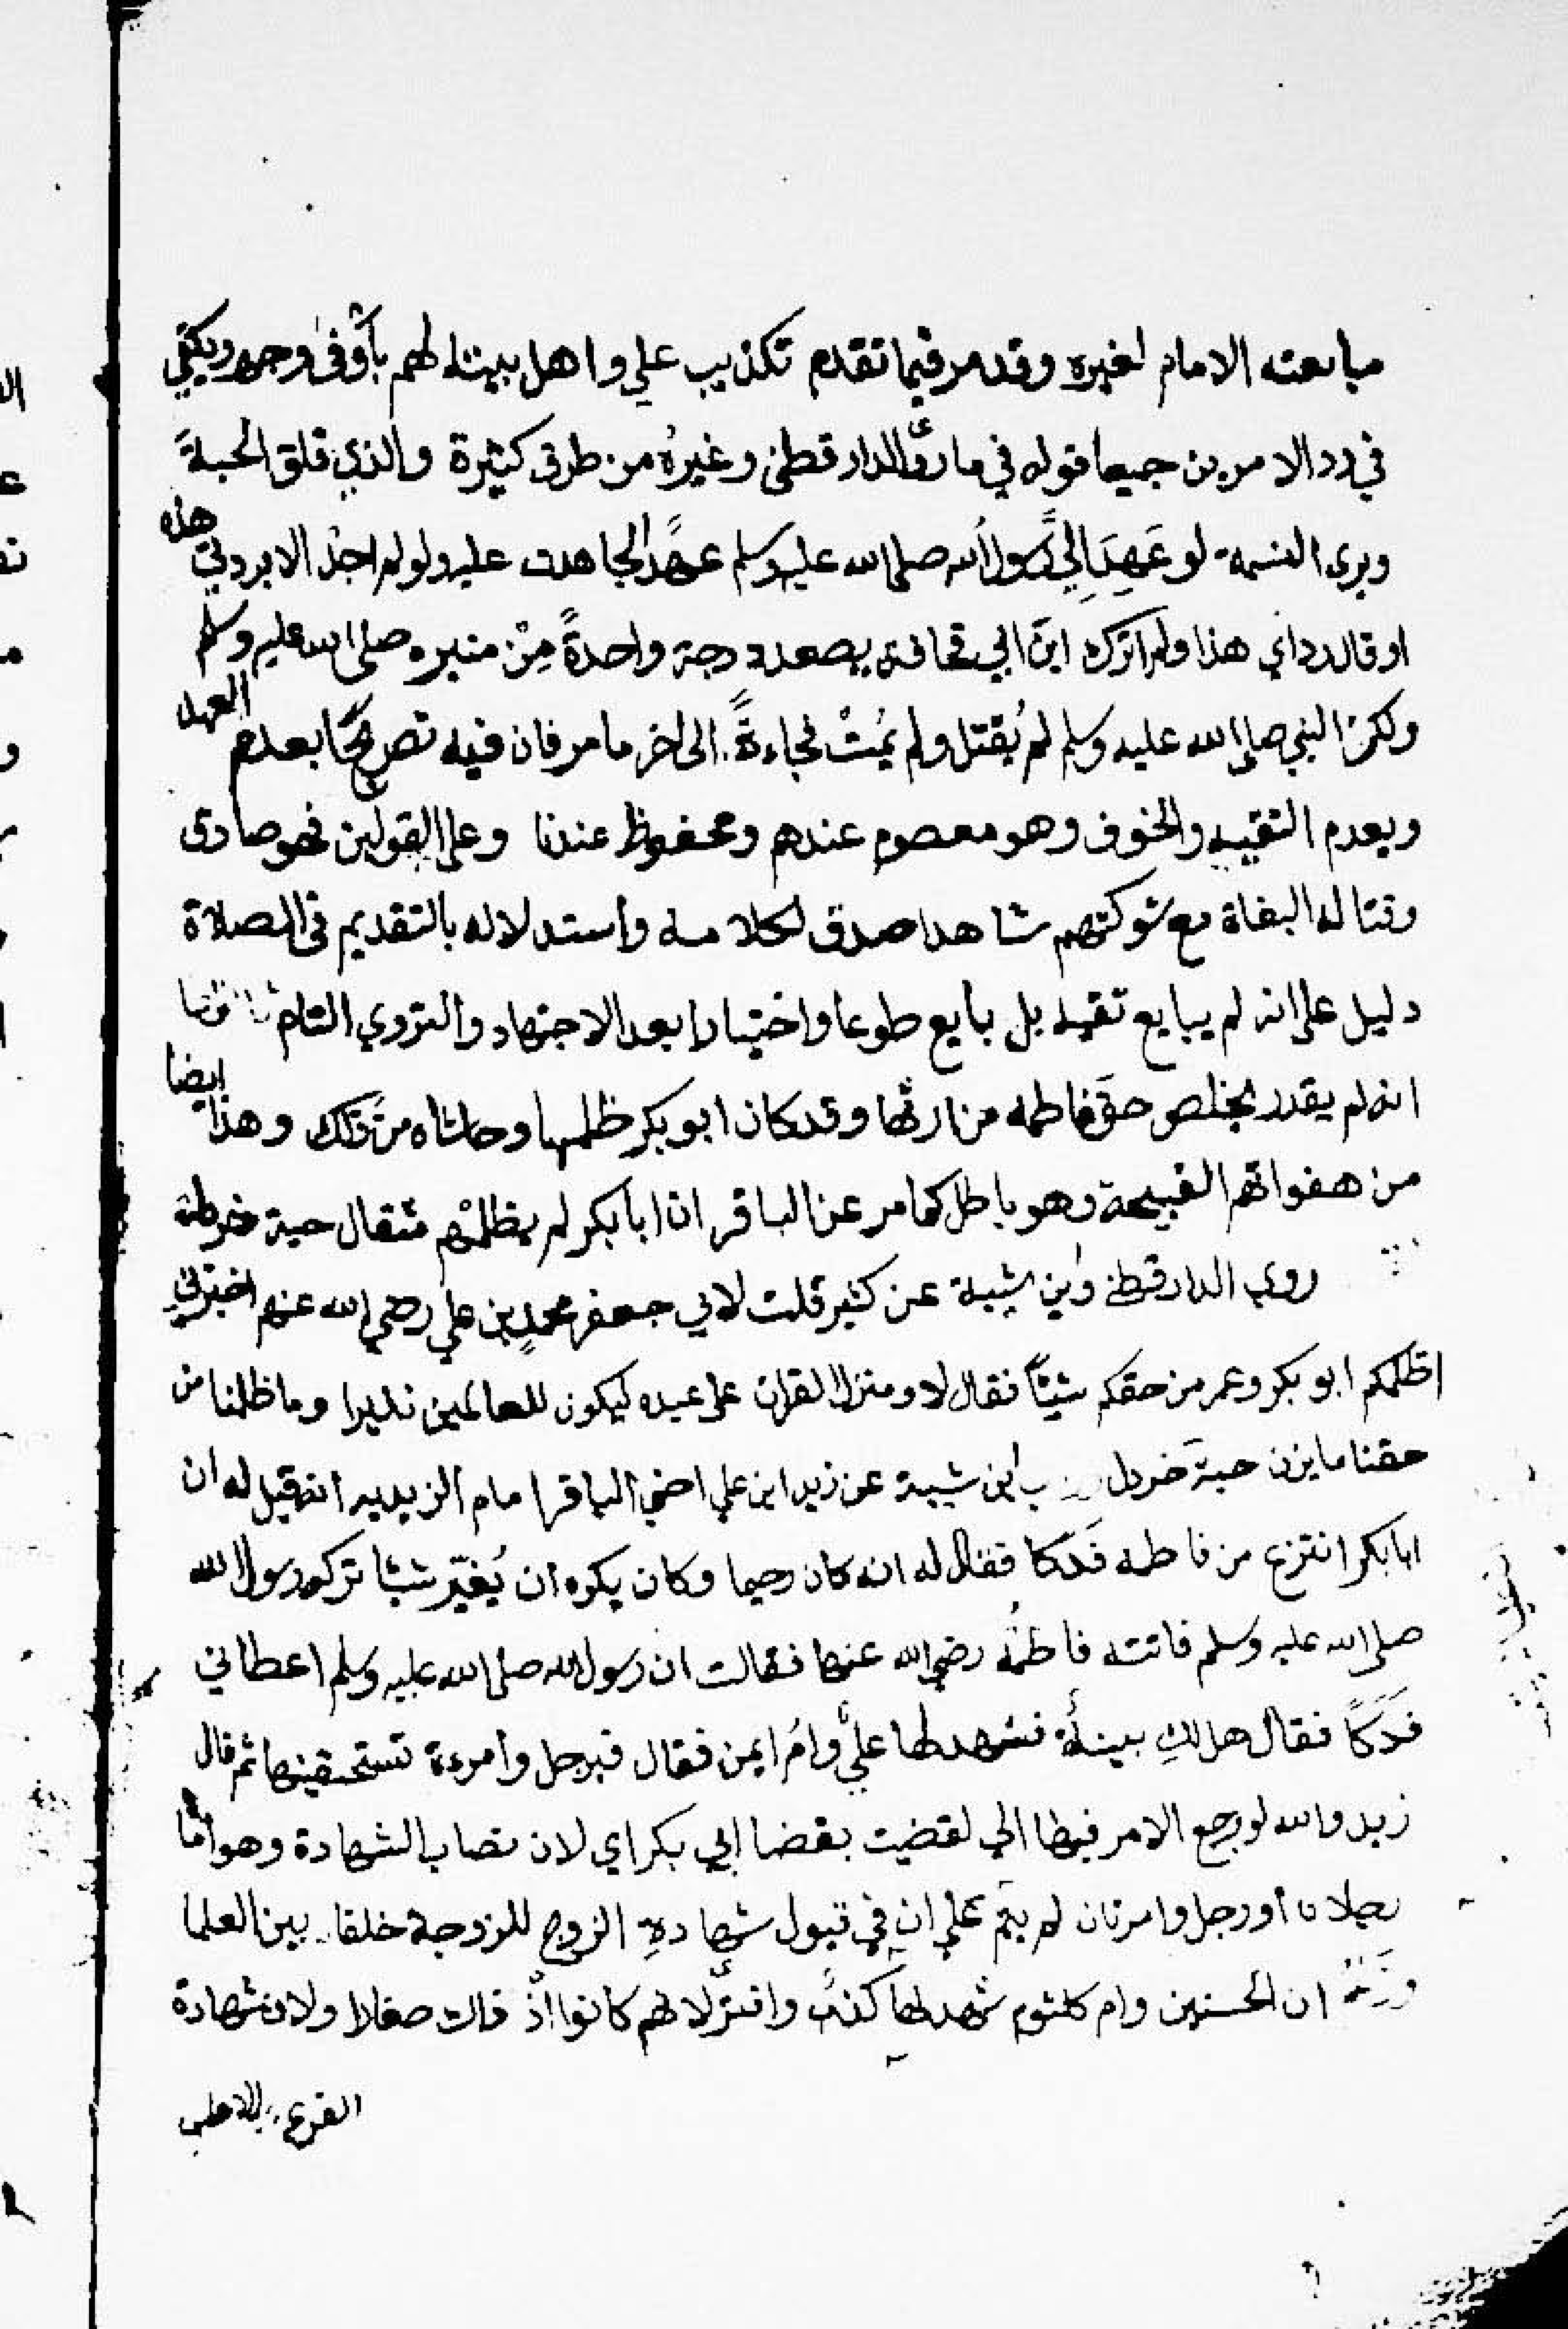 مبايعته الامام لغيره وقد مر فيما تقدم تكذيب علي واهل بيته لهم بأوفى وجه ويكفي
في رد الامرين جميعا قوله في ما رواه الدارقطني وغيره من طرق كثيرة والذي فلق الحبة
وبرى النسمة لو عَهِدَ اليَّ رسول الله صلى الله عليه وسلم عهدًا لجاهدت عليه ولو لم اجد الا بردتي هذه
او قال رداي هذا ولم اترك ابن ابي قحافة يصعد درجة واحدةً مِنْ منبره صلى الله عليه وسلم
ولكن النبي صلى الله عليه وسلم لم يُقتل ولم يُمتْ فجاءةً الى اخر ما مر فان فيه تصريحًا بعدم العهد
وبعدم التقيه والخوف وهو معصوم عندهم ومحفوظ عندنا وعلى القولين فهو صادق
وقتاله البغاة مع شوكتهم شاهدا صدق لكلامه واستدلاله بالتقديم في الصلاة
دليل على انه لم يبايع تقيه بل بايع طوعا واختيارا بعد الاجتهاد والتروي التام
انه لم يقدر يخلص حق فاطمه من ارثها وقد كان ابو بكر ظلمها وحاشاه من ذلك وهذا ايضا
من هفواتهم القبيحة وهو باطل كما مر عن الباقر ان ابا بكر لم يظلمهم مثقال حبة خردلة
روى الدارقطني وابن شيبة عن كثير قلت لابي جعفر محمدٍ بن علي رضي الله عنهم اخبرني
اظلمكم ابو بكر وعمر من حقكم شيئًا فقال لا ومنزل القران على عبده ليكون للعالمين نذيرا وما ظلمنا من
حقنا ما يزن حبةَ خردل ابن شيبة عن زيد ابن علي اخي الباقر امام الزيديه انه قيل له ان
ابا بكر انتزع من فاطمه فَدَكا فقال له انه كان رحيما وكان يكره ان يُغيّر شيئا تركه رسول الله
صلى الله عليه وسلم فاتته فاطمُه رضي الله عنها فقالت ان رسول الله صلى الله عليه وسلم اعطاني
فَدَكًا فقال هل لكِ بينةٌ فشهد لها عليٌّ وامُ ايمن فقال فبرجل وامرءة تستحقينها ثم قال
زيد والله لو رجع الامر فيها الي لقضيت بقضا ابي بكر اي لان نصاب الشهادة وهو امّا
رجلان أو رجل وامرتان لم يتم على ان في قبول شهادةِ الزوج للزوجة خلفا بين العلما
ان الحسنين وام كلثوم شهد لها كذبٌ وافترٌ لانهم كانوا اذْ ذاك صغارا ولان شهادة
الفرع للاصل